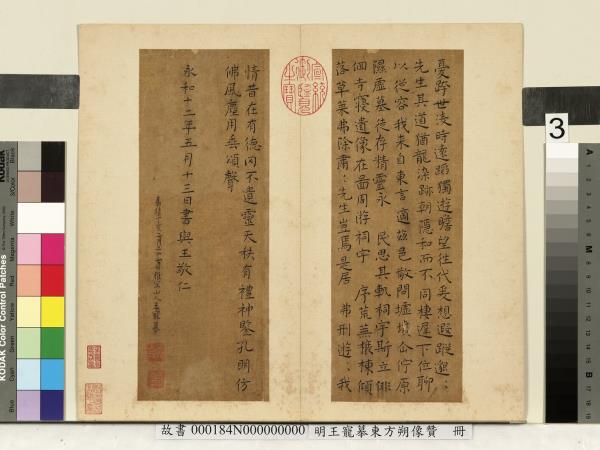 憂跨世淩時遠蹈獨遊瞻望往代爰想遐蹤邈〻
先生其道猶龍染跡朝隱和而不同棲遲下位聊
以從容我来自東言適茲邑敬問墟墳企佇原
隰虛墓徒存精靈永 民思其軌祠宇斯立俳
佪寺寢遺像在啚周遊祠宇 序荒蕪榱棟傾
落草萊弗除肅〻先生豈焉是居 弗刑遊〻我
情昔在有德罔不遺靈天秩有禮神鑒孔明仿
佛風塵用垂頌聲
永和十二年五月十三日書與王敬仁
山人王寵摹
故書 000184N000000000 明王寵摹東方朔像贊 冊
3
KODAK Color Control Patches